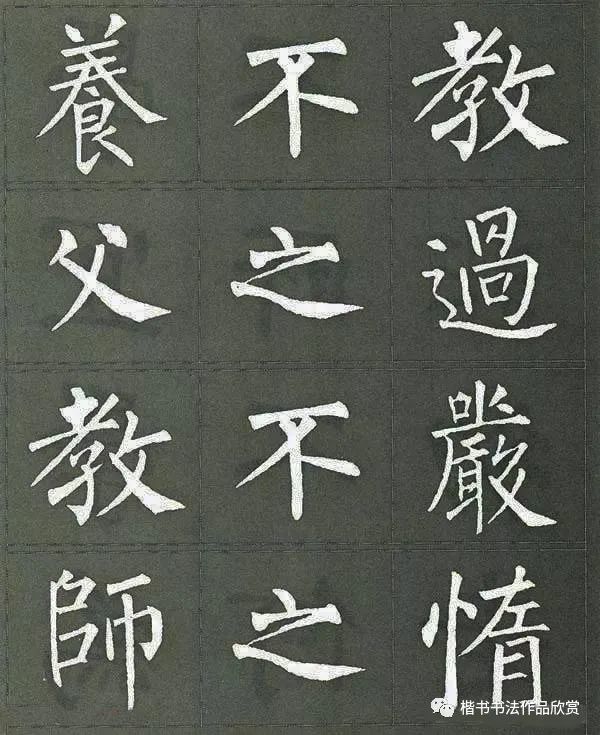 養不教
父之過
教不嚴
師之惰
楷书书法作品欣赏